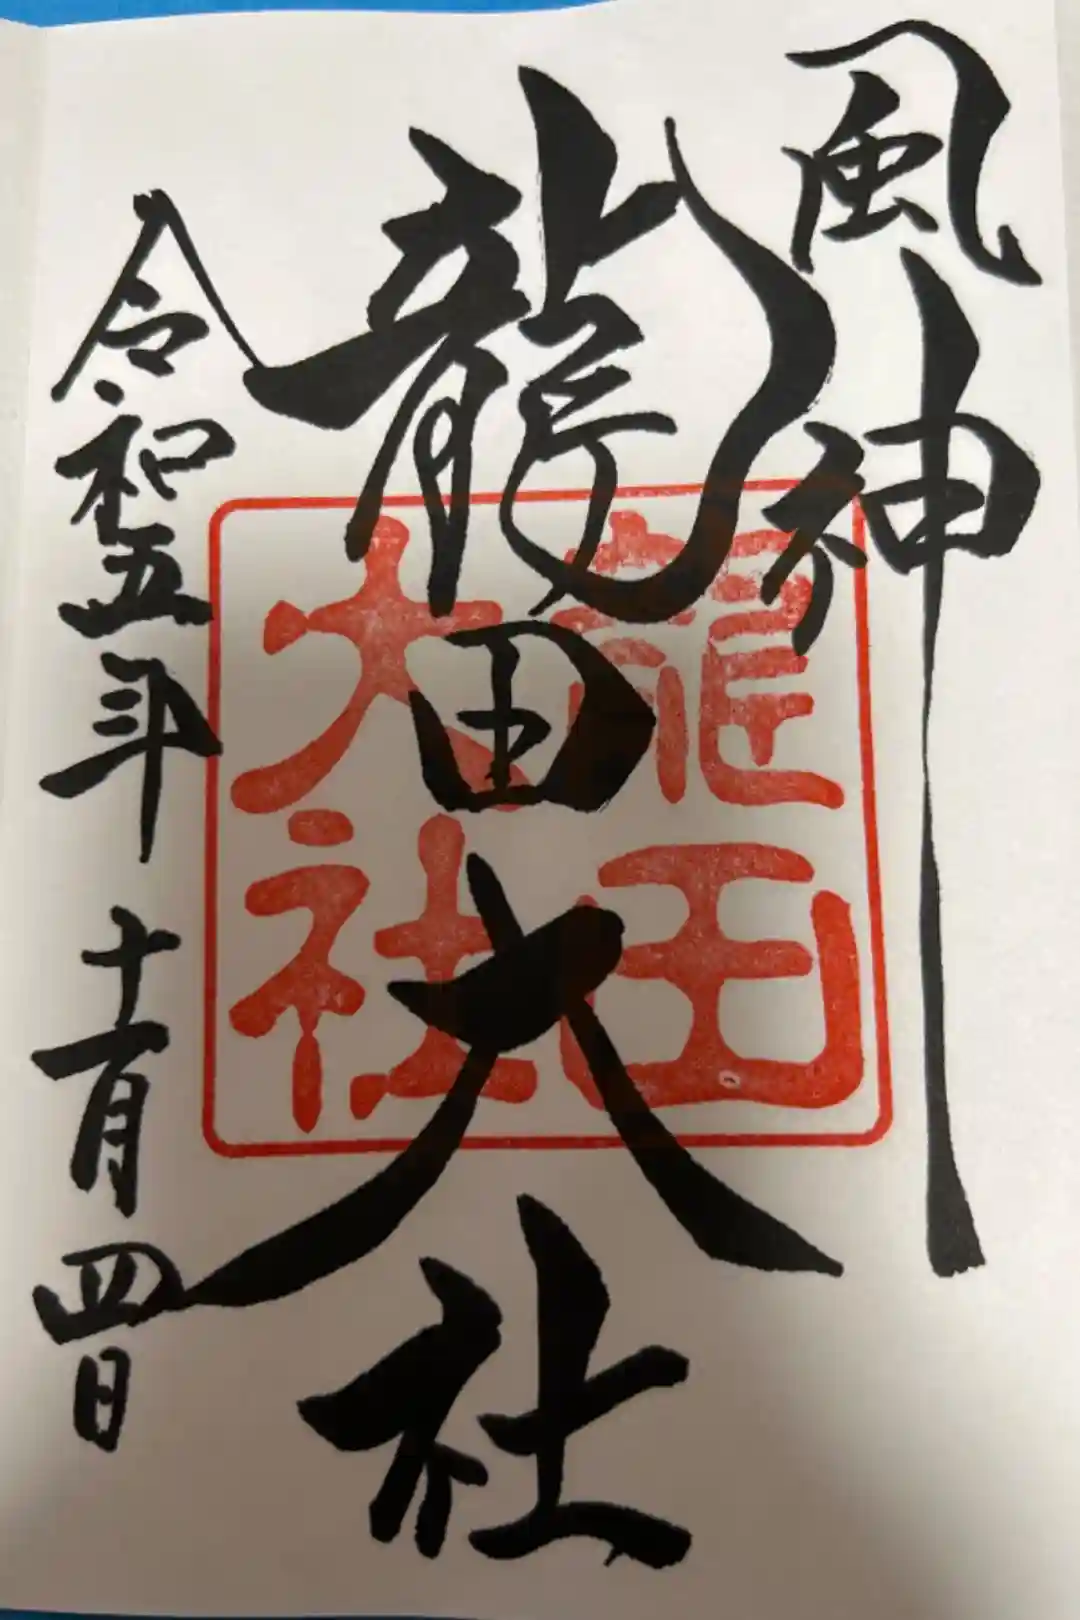 風神
龍田大社
龍田
大社
令和五年十一月四日